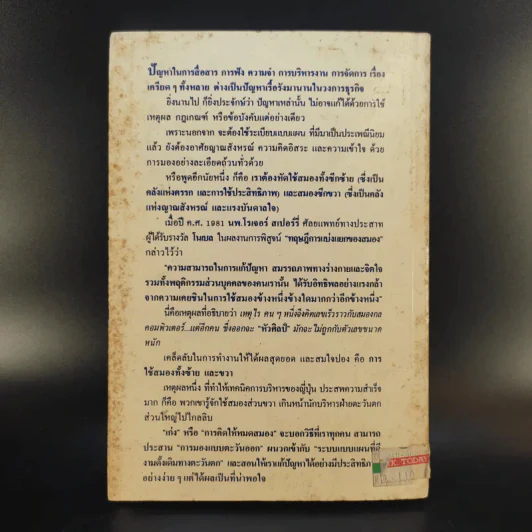 ปัญหาในการสื่อสาร การฟัง ความจำ การบริหารงาน การจัดการ เรื่อง
เครียด ๆ ทั้งหลาย ต่างเป็นปัญหาเรื้อรังมานานในวงการธุรกิจ
ยิ่งนานไป ก็ยิ่งประจักษ์ว่า ปัญหาเหล่านั้น ไม่อาจแก้ได้ด้วยการใช้
เหตุผล กฎเกณฑ์ หรือข้อบังคับแต่อย่างเดียว
เพราะนอกจาก จะต้องใช้ระเบียบแบบแผน ที่มีมาเป็นประเพณีนิยม
แล้ว ยังต้องอาศัยญาณสังหรณ์ ความคิดอิสระ และความเข้าใจ ด้วย
การมองอย่างละเอียดถ้วนทั่วด้วย
หรือพูดอีกนัยหนึ่ง ก็คือ เราต้องหัดใช้สมองทั้งซีกซ้าย (ซึ่งเป็น
คลังแห่งตรรก และการใช้ประสิทธิภาพ) และสมองซีกขวา (ซึ่งเป็นคลัง
แห่งญาณสังหรณ์ และแรงบันดาลใจ)
เมื่อปี ค.ศ. 1981 นพ.โรเจอร์ สเปอร์รี่ ศัลยแพทย์ทางประสาท
ผู้ได้รับรางวัล โนเบล ในผลงานการพิสูจน์ "ทฤษฎีการแบ่งแยกของสมอง"
กล่าวไว้ว่า
"ความสามารถในการแก้ปัญหา สมรรถภาพทางร่างกายและจิตใจ
รวมทั้งพฤติกรรมส่วนบุคคลของคนเรานั้น ได้รับอิทธิพลอย่างแรงกล้า
จากความเคยชินในการใช้สมองข้างหนึ่งข้างใดมากกว่าอีกข้างหนึ่ง"
นี่คือเหตุผลที่อธิบายว่า เหตุไร คน ๆ หนึ่งจึงคิดเลขเร็วราวกับสมองกล
คอมพิวเตอร์...แต่อีกคน ซึ่งออกจะ "หัวศิลป์" มักจะไม่ถูกกับตัวเลขขนาด
หนัก
เคล็ดลับในการทำงานให้ได้ผลสุดยอด และสมใจปอง คือ การ
ใช้สมองทั้งซ้าย และขวา
เหตุผลหนึ่ง ที่ทำให้เทคนิคการบริหารของญี่ปุ่น ประสพความสำเร็จ
มาก ก็คือ พวกเขารู้จักใช้สมองส่วนขวา เกินหน้านักบริหารฝ่ายตะวันตก
ส่วนใหญ่ไปไกลลิบ
"เก่ง" หรือ "การคิดให้หมดสมอง" จะบอกวิธีที่เราทุกคน สามารถ
ประสาน "การมองแบบตะวันออก" ผนวกเข้ากับ "ระบบแบบแผนที่ดี
งามดั้งเดิมทางตะวันตก" และสอนให้เราแก้ปัญหาได้อย่างมีประสิทธิภ
อย่างง่าย ๆ แต่ได้ผลเป็นที่น่าพอใจ
TODAY